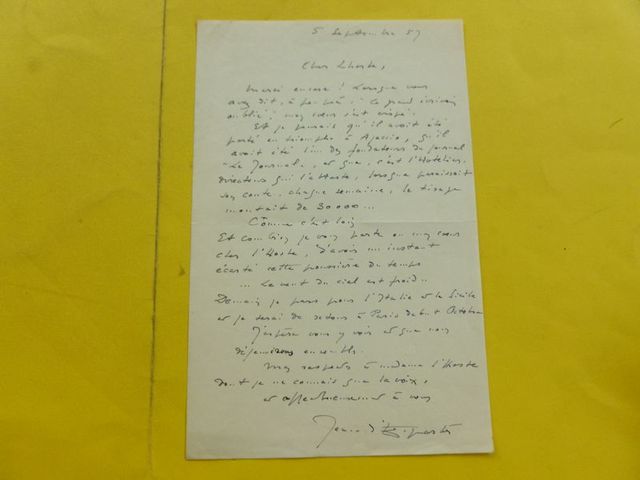 5 Septembre 57
Cher Lhoste,
Merci encore ! Lorsque vous
avez dit, à "ce grand écrivain
oublié", mon cœur s'est crispé.
Et je pensais qu'il avait été
porté en triomphe à Ajaccio, qu'il
avait été l'un des fondateurs du journal
"Le Journal", et que, c'est
directeur qui lorsque paraissait
son conte, chaque semaine, le tirage
montait de 30000...
Comme c'est loin
Et combien je vous porte en mon cœur
cher l'Hoste, d'avoir un instant
écarté cette poussière du temps
... Le vent du ciel est froid..
Demain je pars pour l'Italie et la Sicile
et je serai de retour à Paris début Octobre
J'espère vous y voir et que nous
déjeunerons ensemble.
Mes respects à madame l'Hoste
dont je ne connais que la voix,
et affectueusement à vous
Jean d'Esparbès